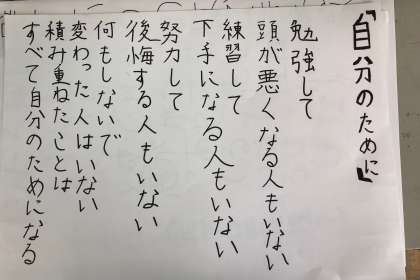 「自分のために」
勉強して
頭が悪くなる人もいない
練習して
下手になる人もいない
努力して
後悔する人もいない
何もしないで
変わった人はいない
積み重ねたことは
すべて自分のためになる